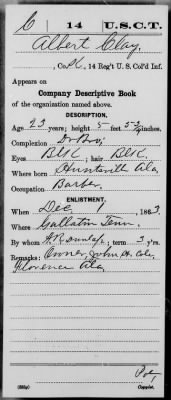 C | 14 | U.S.C.T.
Albert Clay
, Co. K, 14 Reg't U. S. Col'd Inf.
Appears on
Company Descriptive Book
of the organization named above.
DESCRIPTION.
Age 23 years; height 5 feet inches.
Complexion Dr Bro;
Eyes Blk; hair Blk.
Where born Huntsville Ala,
Occupation Barber.
ENLISTMENT.
When Dec 1, 1863
Where Gallatin Tenn.
By whom Dunlap; term 3 y'rs.
Remarks: Owner, John H.
Florence Ala
Copyist.